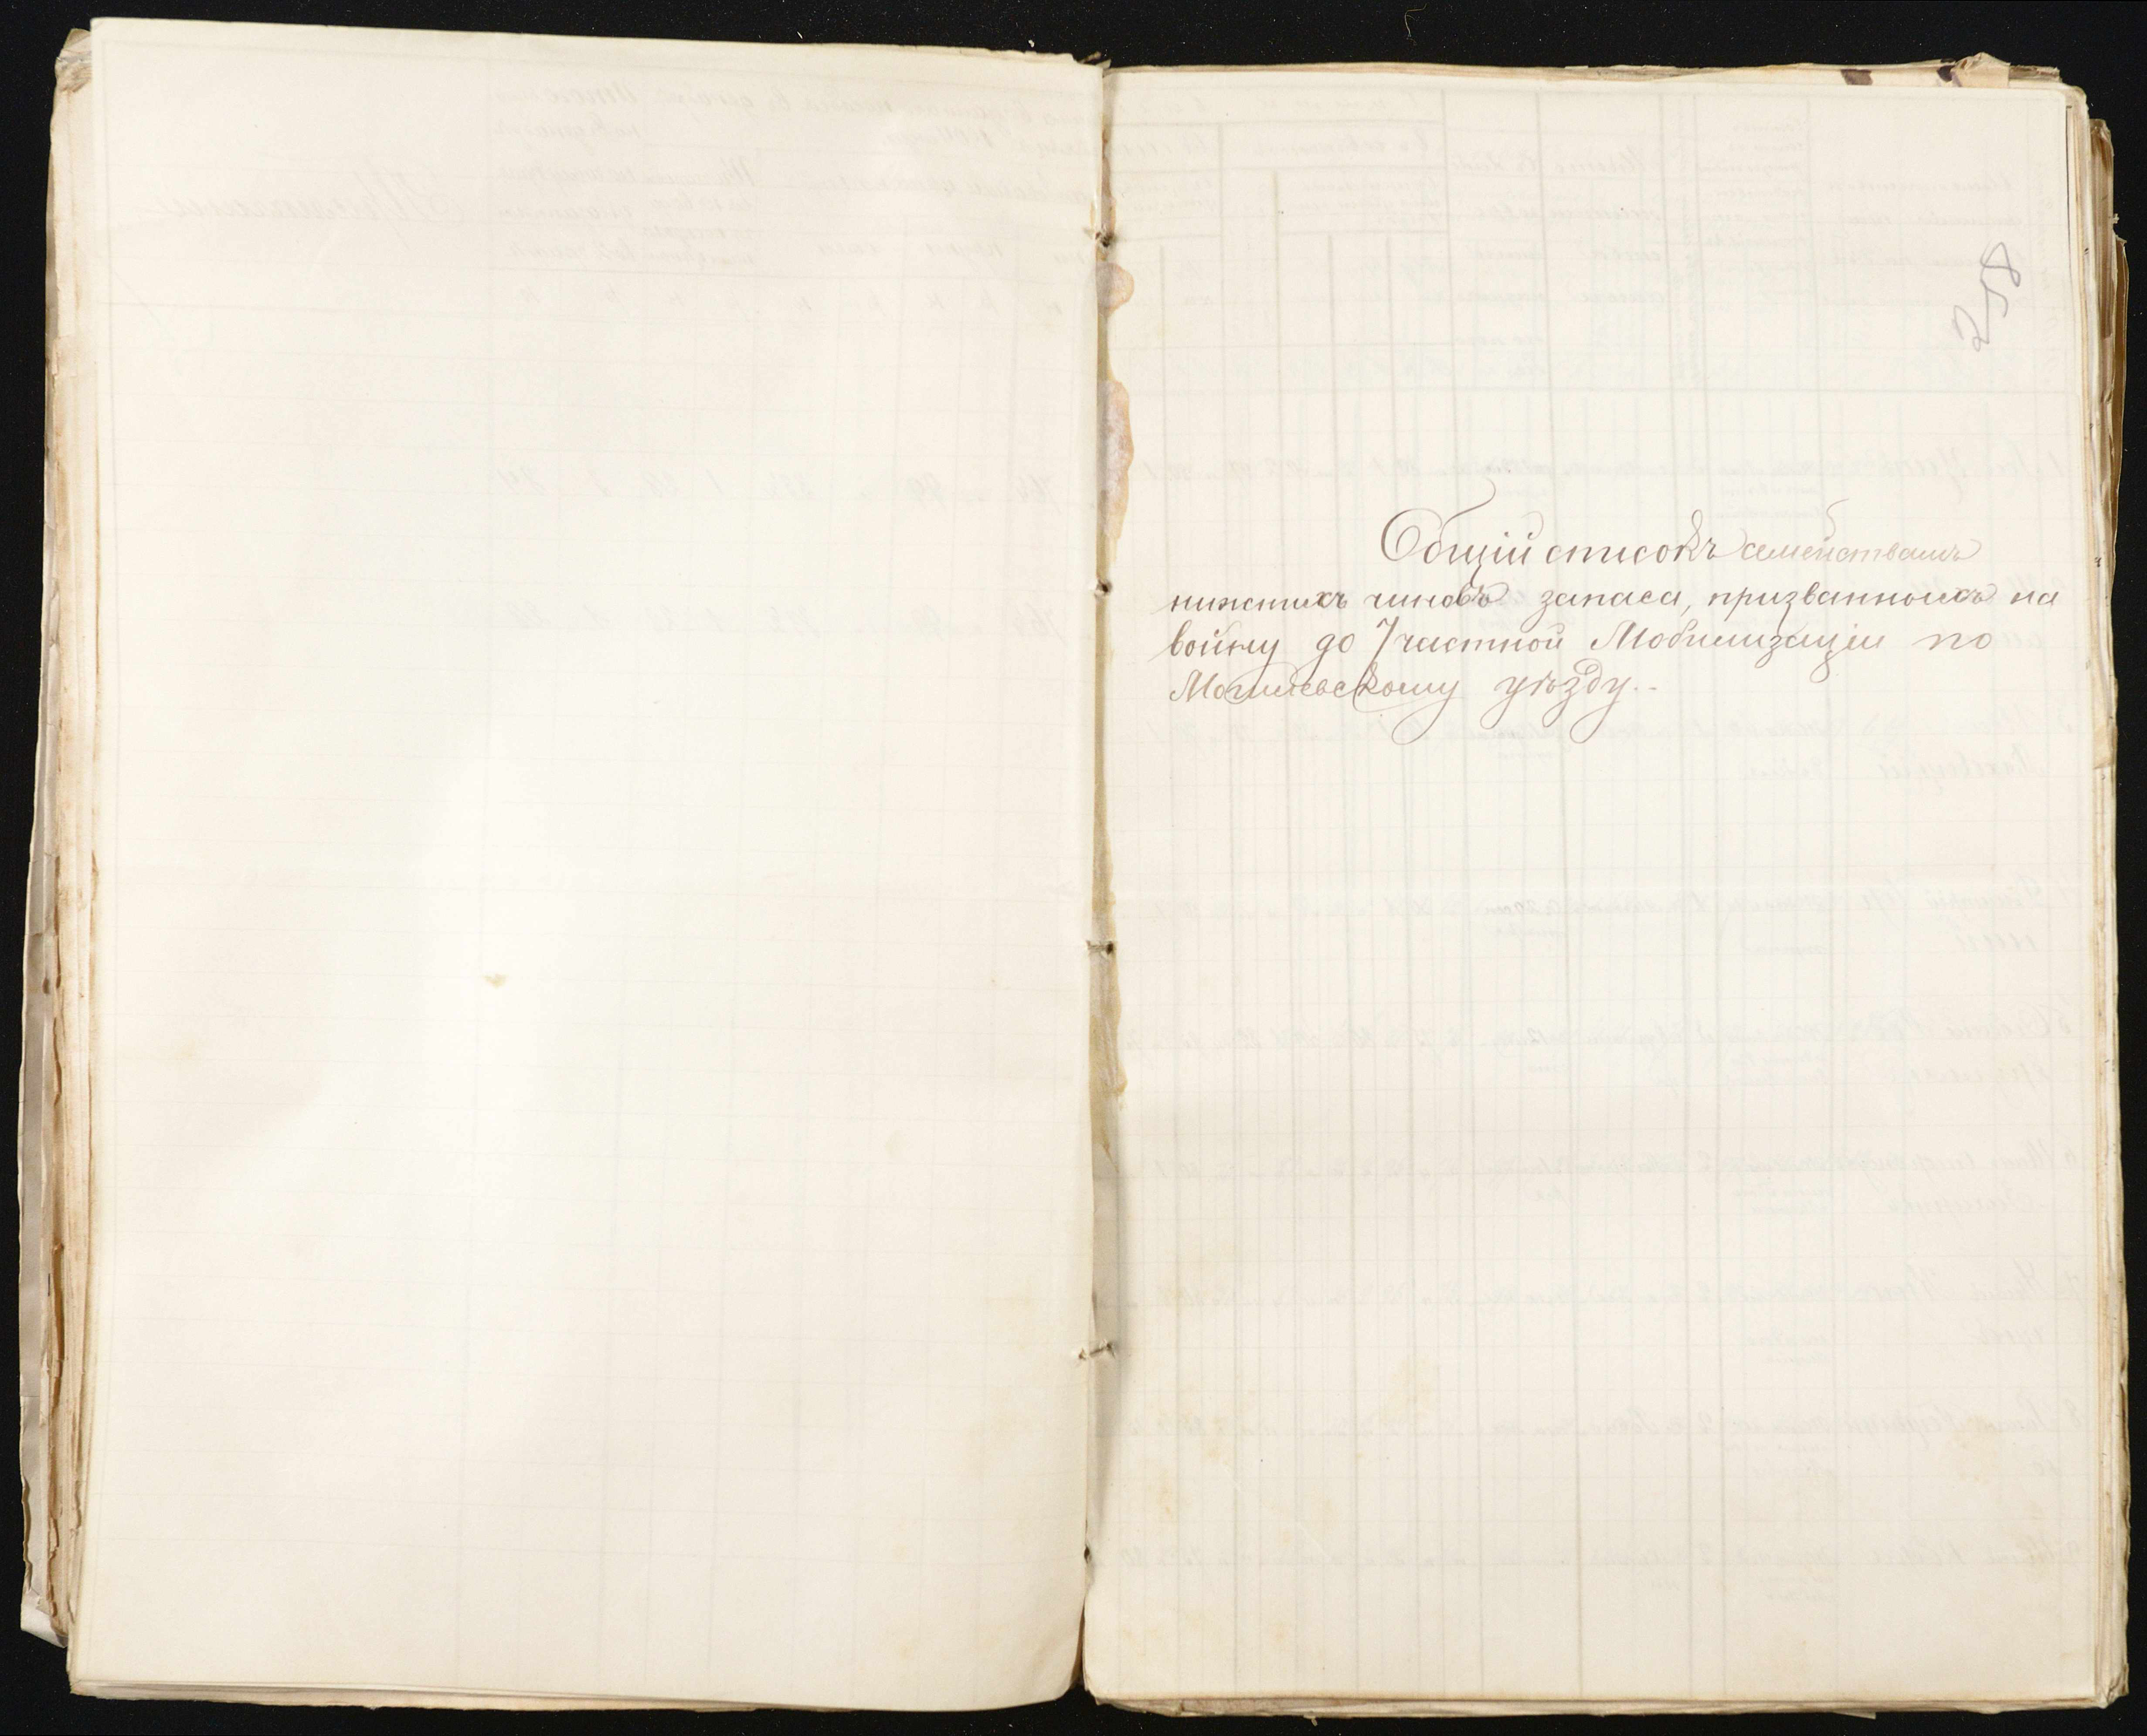 258
Общій списокъ семействамъ
нижнихъ чиновъ запаса, призванныхъ на
войну до 7 частной Мобилизаціи по
Могилевскому уѣзду.